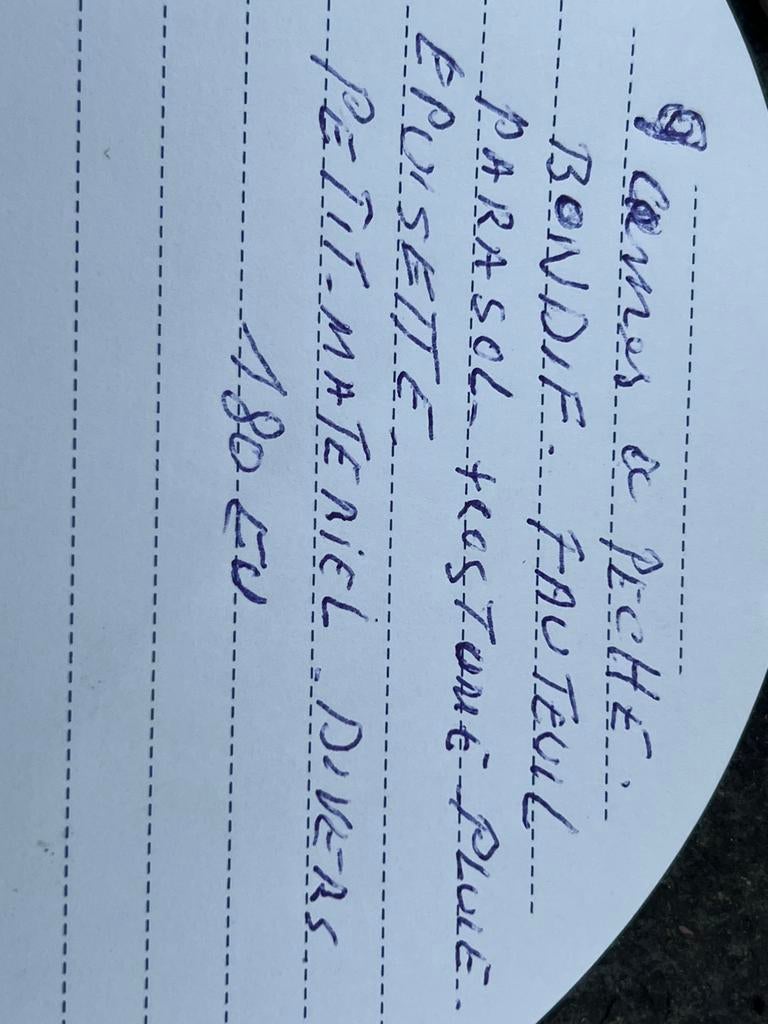 9 Cannes a PECHE.
BONDIF. FAUTEUIL
PARASOL - + COSTUME PLUIE.
EPUISETTE.
PETIT. MATERIEL. DIVERS
180 EU